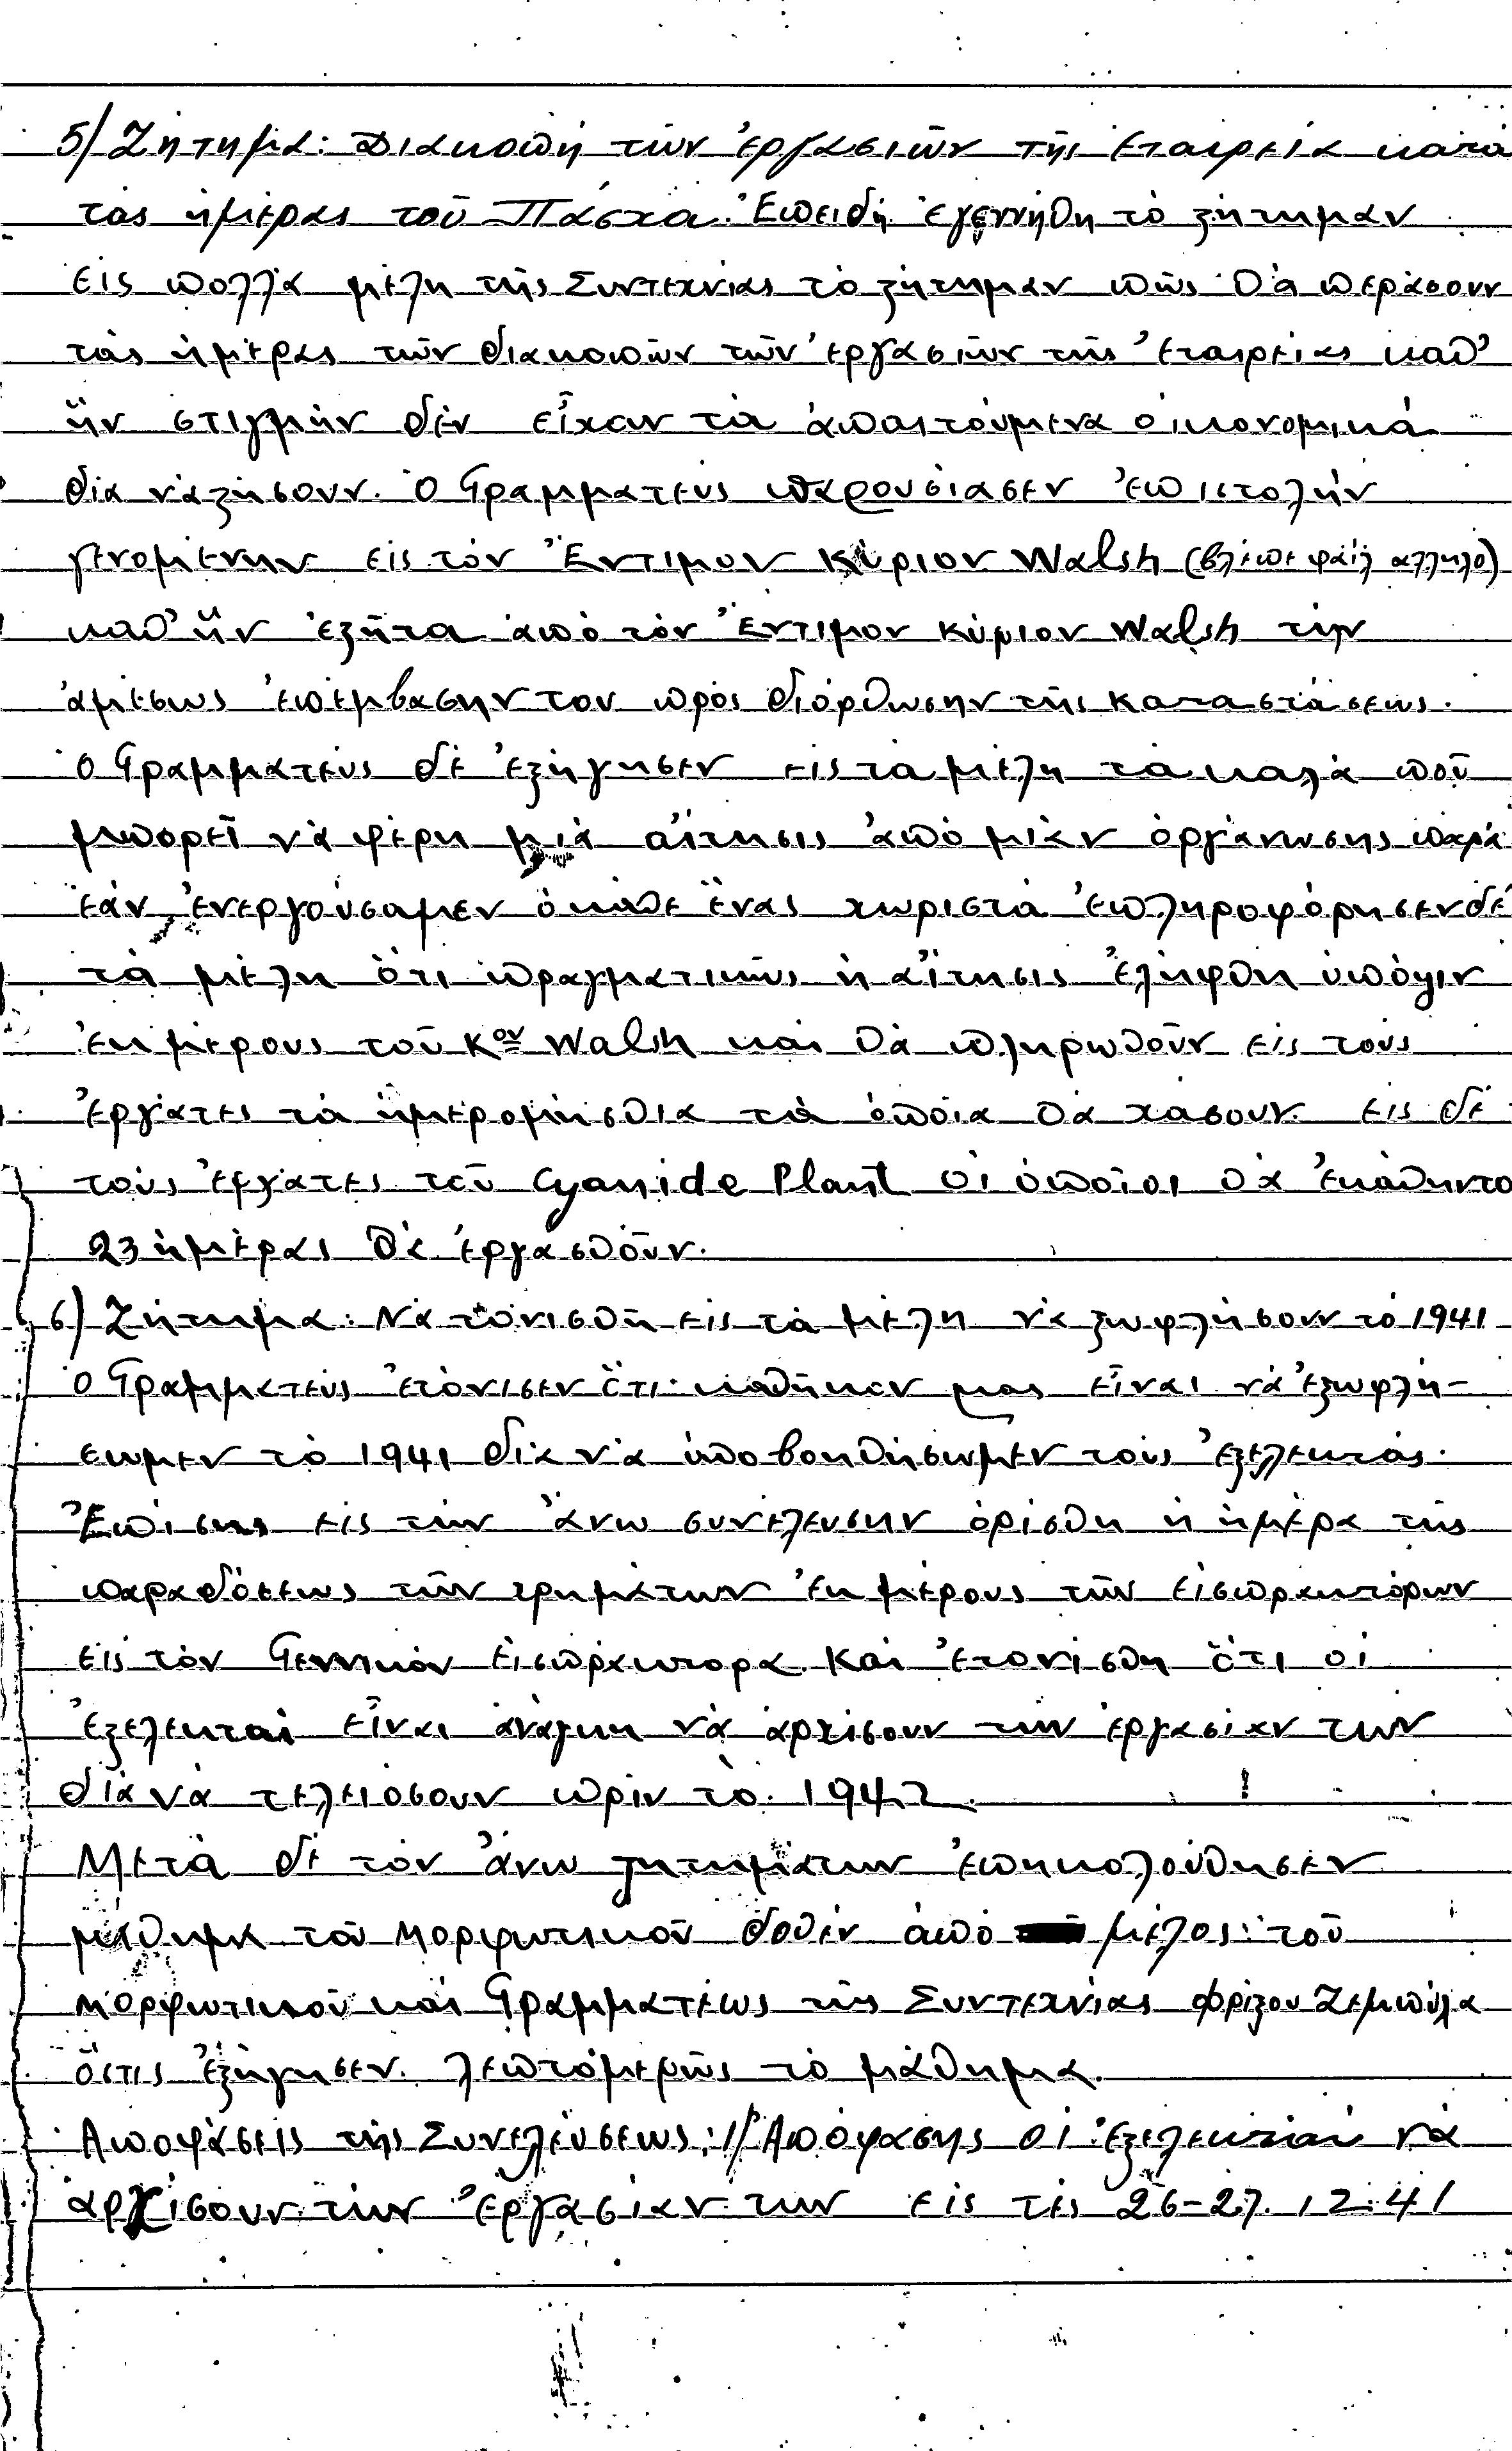 5/ Ζήτημα: Διακοπή τῶν ἐργασιῶν τῆς Ἐταιρεία κατά
τας ἡμέρας τοῦ Πάσχα. Ἐπειδή ἐγεννήθη τὸ ζήτημαν
εἰς πολλά μέλη τῆς Συντεχνίας τὸ ζήτημαν πῶς θὰ περάσουν
τὰς ἡμέρας τῶν διακοπῶν τῶν ἐργασιῶν τῆς ἑταιρείας καθ'
ἥν στιγμήν δέν εἶχαν τὰ ἀπαιτούμενα οἰκονομικά
διά νά ζήσουν. Ὁ Γραμματεύς παρουσίασεν ἐπιστολήν
γενομένην εἰς τόν Ἔντιμον Κύριον Walsh (βλέπε φάϊλ αλληλο)
καθ' ἥν ἐζήτα ἀπό τόν Ἔντιμον κύριον Walsh τήν
ἀμέσως ἐπέμβασην του πρός διόρθωσην τῆς καταστάσεως.
Ὁ Γραμματεύς δέ ἐξήγησεν εἰς τά μέλη τά καλά ποῦ
μπορεῖ νὰ φέρη μιά αἴτησις ἀπό μίαν ὀργάνωσης παρά
ἐάν ἐνεργούσαμεν ὁ κάθε ἕνας χωριστά ἐπληροφόρησεν δέ
τὰ μέλη ὅτι πραγματικῶς ἡ αἴτησις ἐλήφθη ὑπόψιν
ἐκ μέρους τοῦ Κου Walsh καί θά πληρωθοῦν εἰς τούς
ἐργάτες τὰ ἡμερομήσθια τὰ ὁποῖα θά χάσουν. εἰς δέ
τούς ἐργάτες τοῦ Cyanide Plant οἱ ὁποῖοι θά ἐκάθηντο
23 ἡμέρας θά ἐργασθοῦν.
6) Ζήτημα: Νά τονισθῆ εἰς τὰ μέλη νά ξωφλήσουν τό 1941
Ὁ Γραμματεύς ἐτόνισεν ὅτι καθῆκον μας εἶναι νά ἐξωφλή-
σωμεν τὸ 1941 διά νά ὑποβοηθήσωμεν τούς ἐξελεκτάς.
Ἐπίσης εἰς τήν ἄνω συνέλευσην ὁρίσθη ἡ ἡμέρα τῆς
παραδόσεως τῶν χρημάτων ἐκ μέρους τῶν εἰσπρακτόρων
εἰς τὸν Γενικόν Εἰσπράκτορα καί ἐτονίσθη ὅτι οἱ
ἐξελεκταί εἶναι ἀνάγκη νὰ ἀρχίσουν τήν ἐργασίαν των
διὰ νὰ τελειόσουν πρίν τὸ 1942
Μετὰ δέ τόν ἄνω ζητημάτων ἐπηκολούθησεν
μάθημα τοῦ Μορφωτικοῦ δοθέν ἀπό μέλος τοῦ
Μορφωτικοῦ καί Γραμματέως τῆς Συντεχνίας Φρίξου Ζεμπύλα
ὅστις ἐξήγησεν λεπτόμερῶς τὸ μάθημα.
Ἀποφάσεις τῆς Συνελεύσεως: 1/ Ἀπόφασης οἱ ἐξελεκταί νά
ἀρχίσουν τήν ἐργασίαν των εἰς τές 26-27.12.41